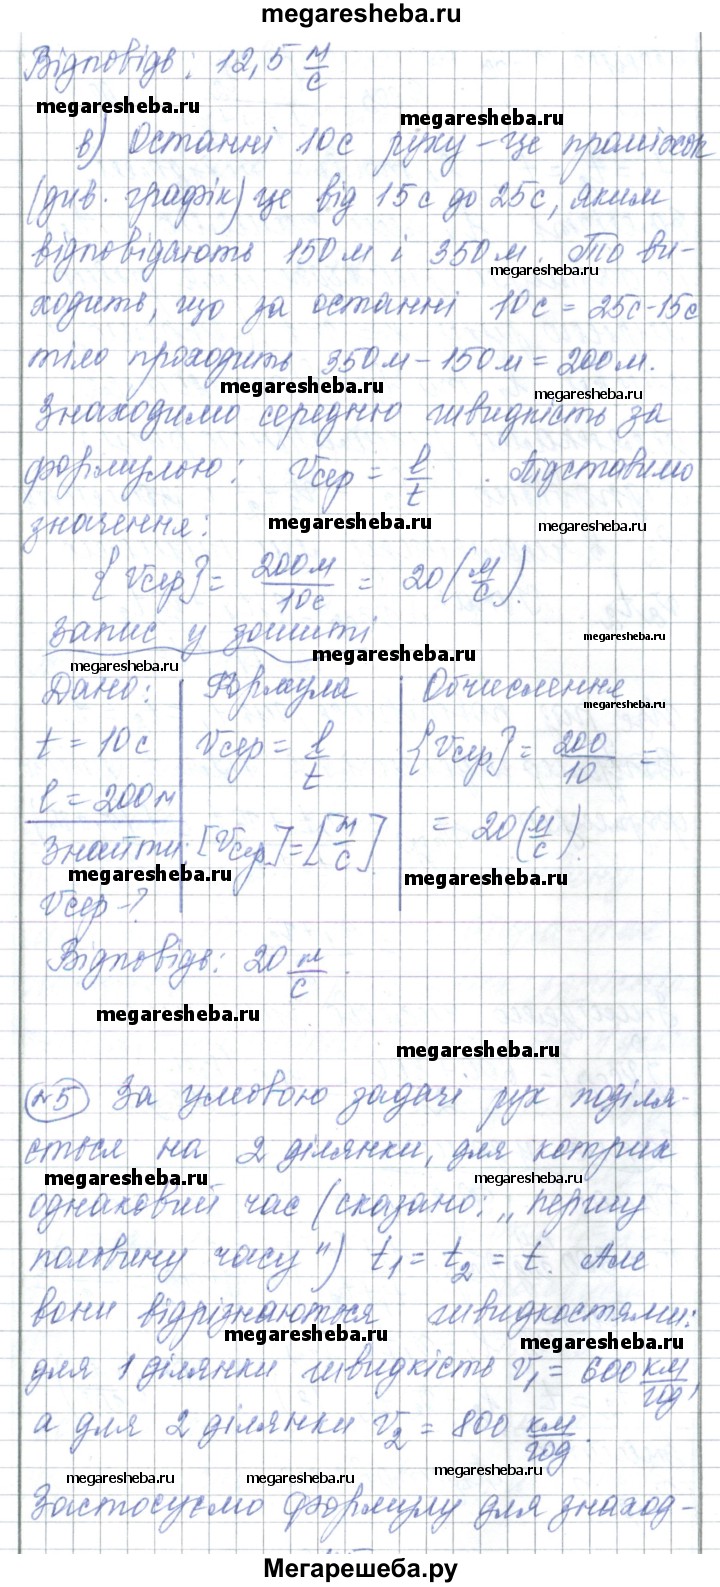 megaresheba.ru
Відповідь: 12,5 м/с
megaresheba.ru
megaresheba.ru
в) Останні 10с руху - це проміжок
(див. графік) це від 15с до 25с, яким
відповідають 150м і 350м. То ви-
megaresheba.ru
ходить, що за останні 10с = 25с-15с
тіло проходить 350м - 150м = 200м.
megaresheba.ru
megaresheba.ru
Знаходимо середню швидкість за
формулою: Vсер = l/t. Підставимо
значення:
megaresheba.ru
megaresheba.ru
{Vсер} = 200м/10с = 20 (м/с).
Запис у зошиті
megaresheba.ru
megaresheba.ru
megaresheba.ru
Дано: Формула Обчислення
megaresheba.ru
t = 10с Vсер = l/t {Vсер} = 200/10 =
l = 200м
Знайти: [Vсер] = [м/с] = 20 (м/с).
megaresheba.ru
megaresheba.ru
Vсер - ?
Відповідь: 20 м/с.
megaresheba.ru
megaresheba.ru
№5 За умовою задачі рух поділя-
ється на 2 ділянки, для котрих
megaresheba.ru
megaresheba.ru
однаковий час (сказано: „першу
половину часу") t₁ = t₂ = t. Але
вони відрізняються швидкостями:
megaresheba.ru
megaresheba.ru
для 1 ділянки швидкість V₁ = 600 км/год,
а для 2 ділянки V₂ = 800 км/год.
megaresheba.ru
megaresheba.ru
megaresheba.ru
Застосуємо формулу для знаход-
Мегарешеба.ру